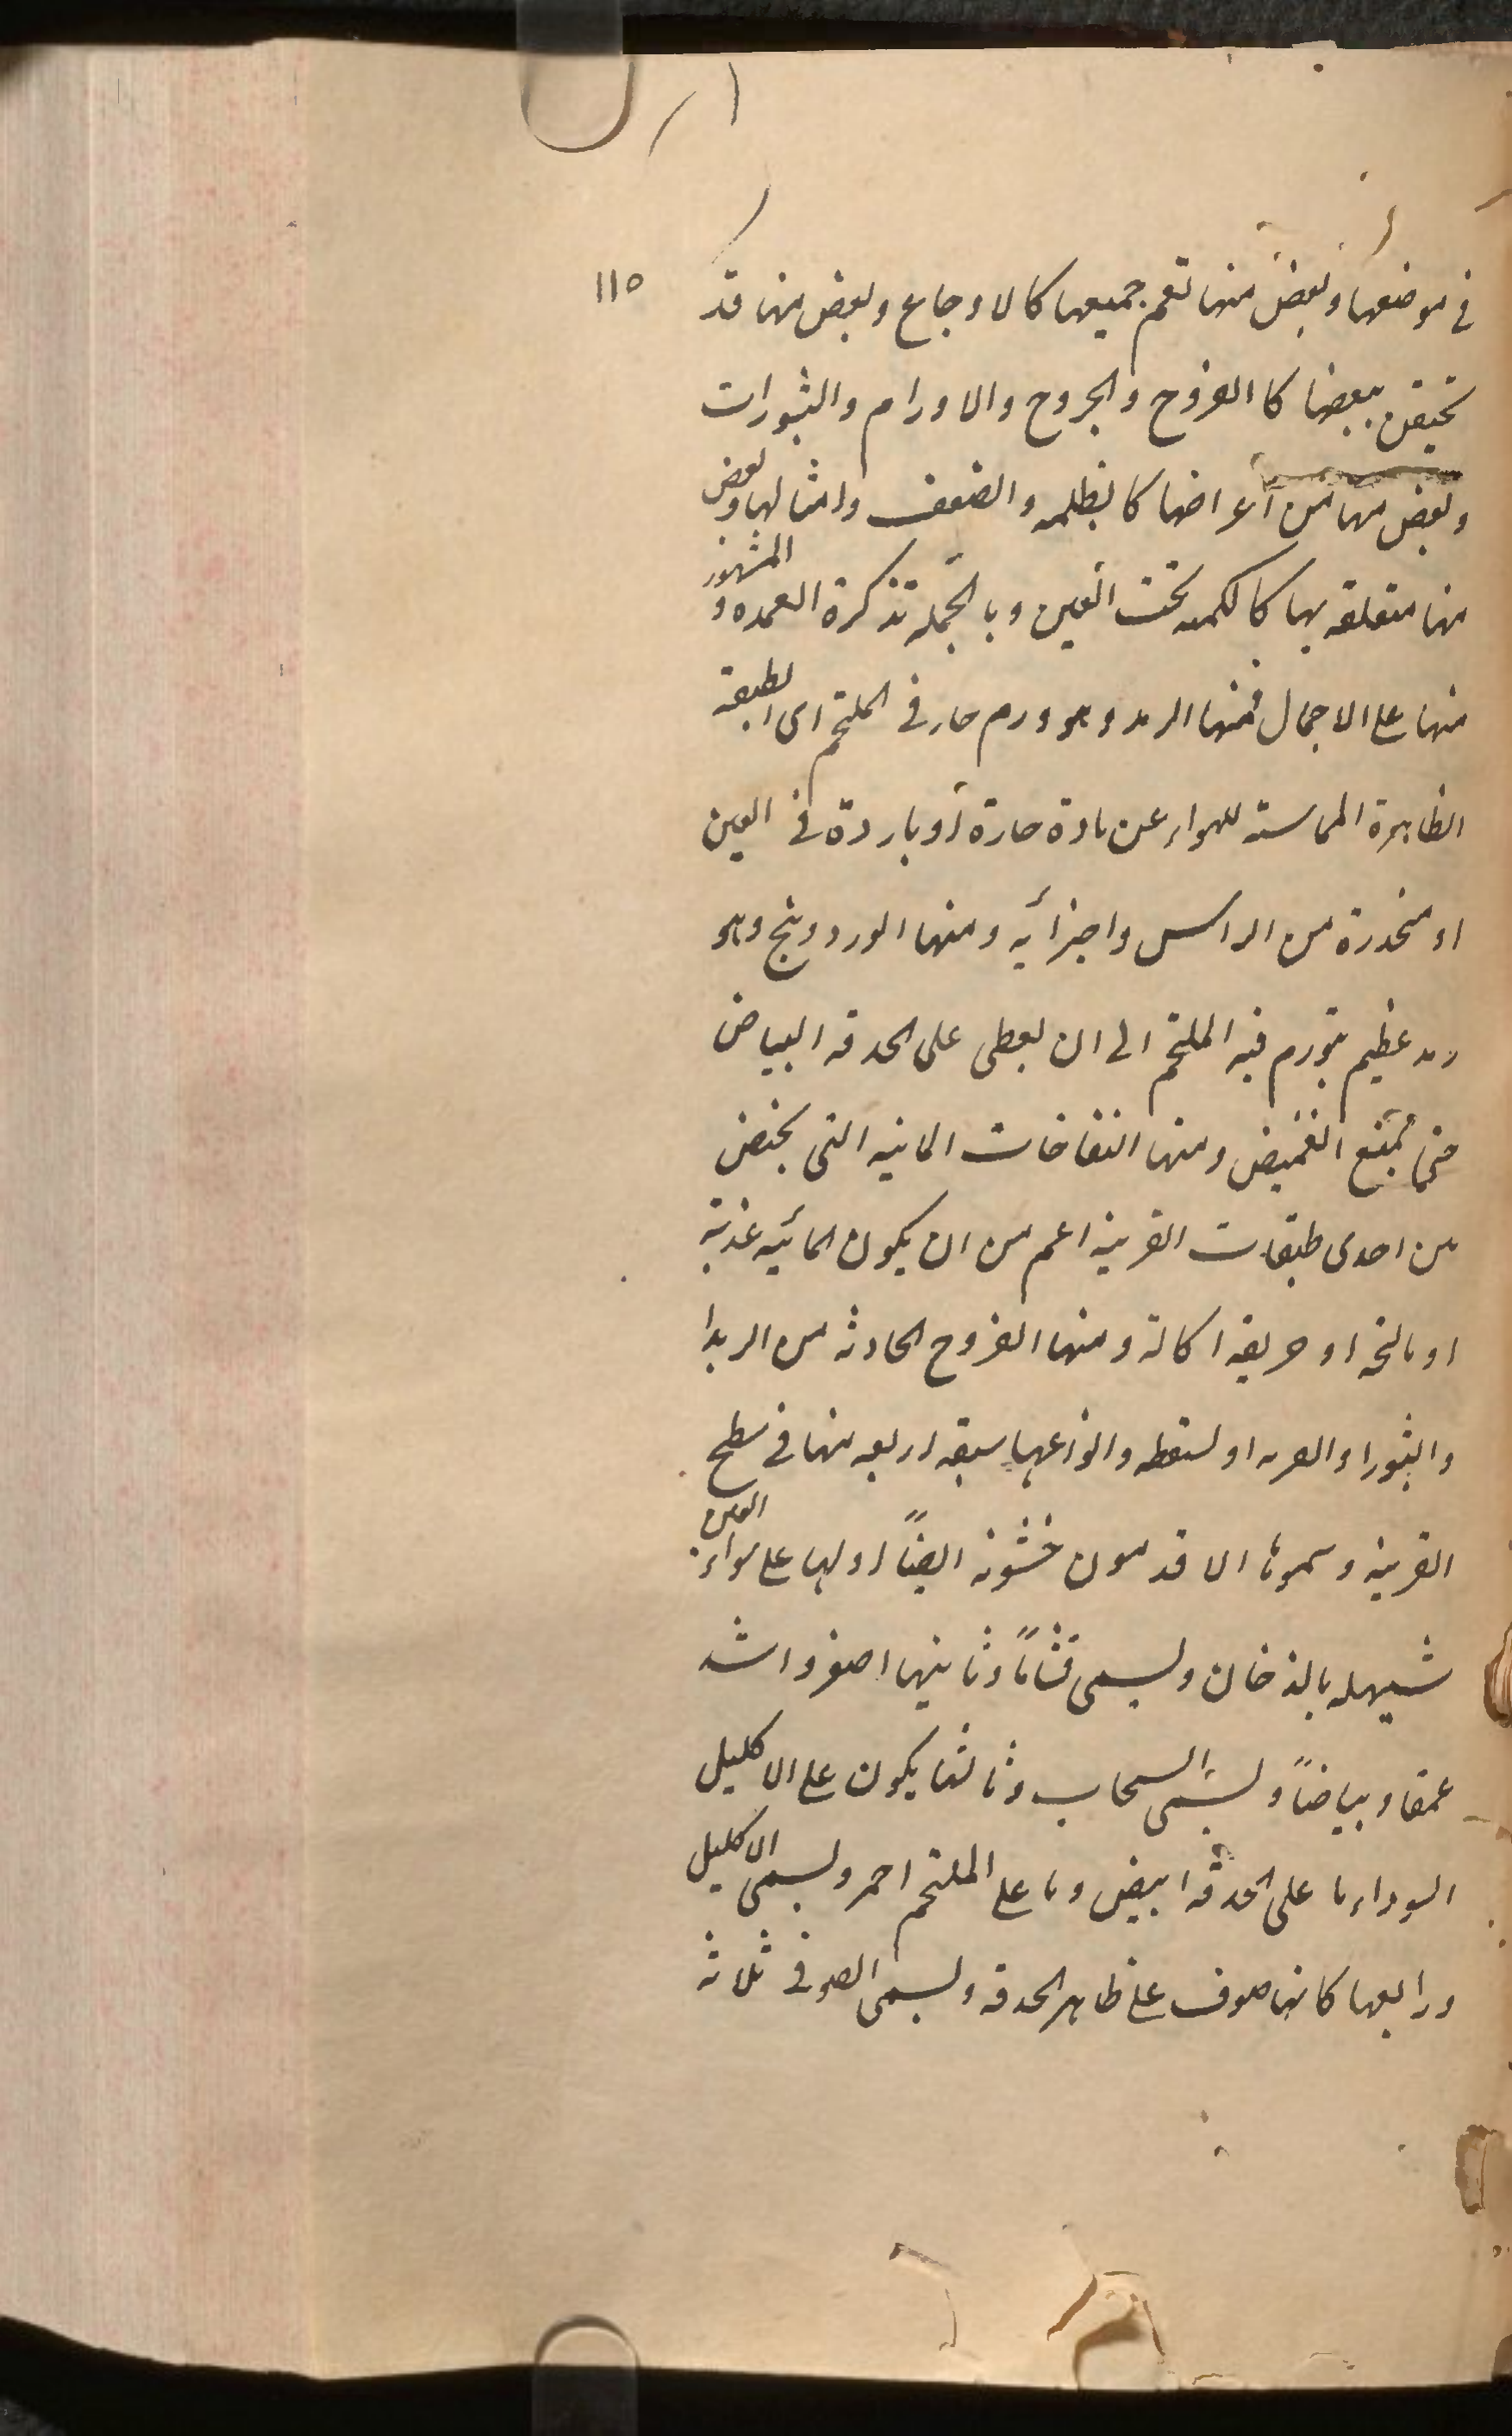 ١١٥
في موضعها وبعض منها تعم جميعها كالاوجاع وبعض منها قد
تختص ببعضها كالقروح والجروح والاورام والبثورات
وبعض منها من أعراضها كالظلمه والضعف وامثالها وبعض
منها متعلقه بها كالكمنه تحت العين وبالجمله تذكرة العمده والمشهور
منها على الاجمال فمنها الرمد وهو ورم حار في الملتحم اى الطبقة
الظاهرة المماسته للهواء عن مادة حارة أو باردة في العين
او منحدرة من الراس واجزائه ومنها الوردينج وهو
رمد عظيم يتورم فيه الملتحم الى ان يغطى على الحدقه البياض
حتى يمتنع التغميض ومنها النفاخات المائيه التى تختص
من احدى طبقات القرنيه اعم من ان يكون المائيه عذبة
او مالحه او حريفه اكالة ومنها القروح الحادثه من الرمد
والبثور او الضربه او السقطه وانواعها سبعه اربعه منها في سطح
القرنيه وسموها الاقدمون خشونه ايضاً اولها على سواد العين
شبيهه بالدخان ويسمى قتاماً وثانيها اصغر واشد
عمقا وبياضاً ويسمى السحاب وثالثها يكون على الاكليل
السواد ما على الحدقه ابيض وما على الملتحم احمر ويسمى الاكليل
ورابعها كانها صوف على ظاهر الحدقه ويسمى الصوفى ثلاثه